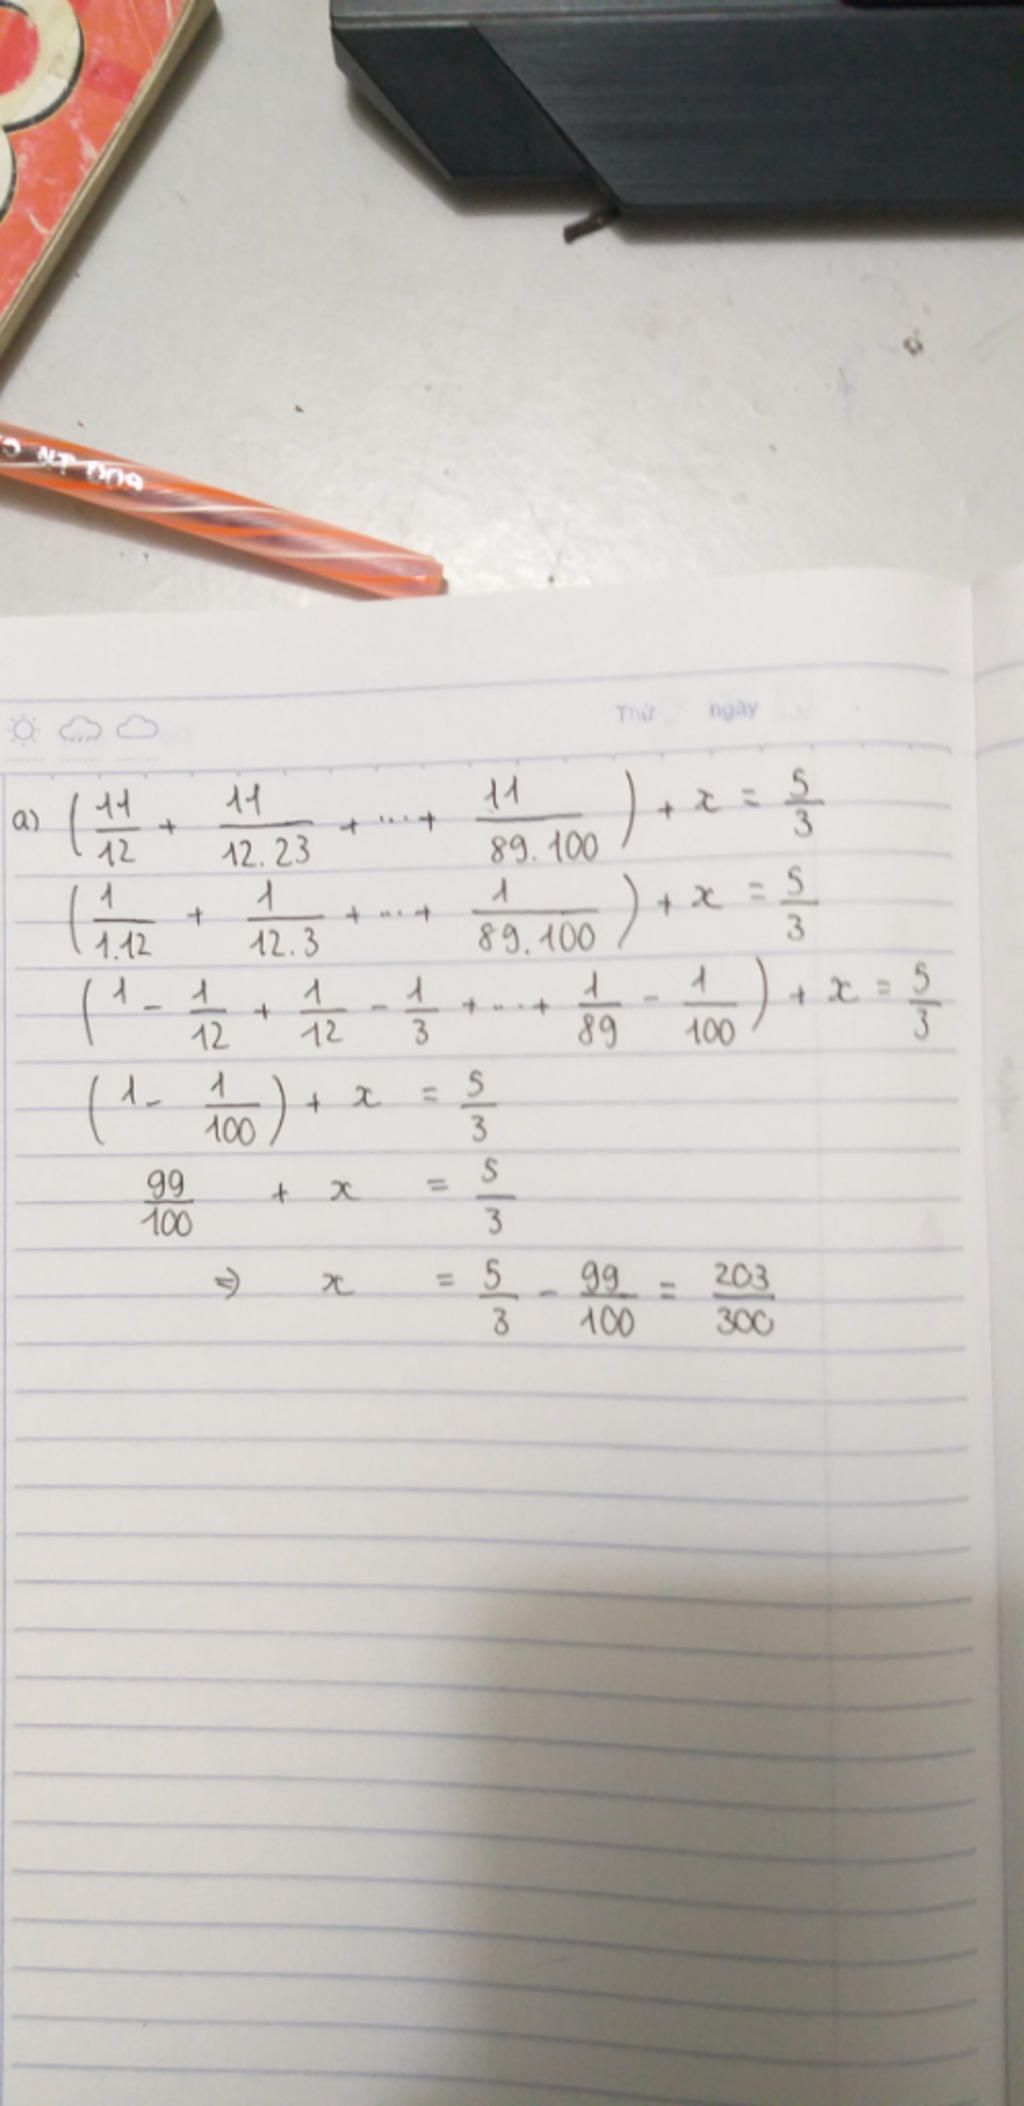 NT 009
Thứ ngày
a) ( 11/12 + 11/12.23 + ... + 11/89.100 ) + x = 5/3
( 1/1.12 + 1/12.3 + ... + 1/89.100 ) + x = 5/3
( 1 - 1/12 + 1/12 - 1/3 + ... + 1/89 - 1/100 ) + x = 5/3
( 1 - 1/100 ) + x = 5/3
99/100 + x = 5/3
⇒ x = 5/3 - 99/100 = 203/300